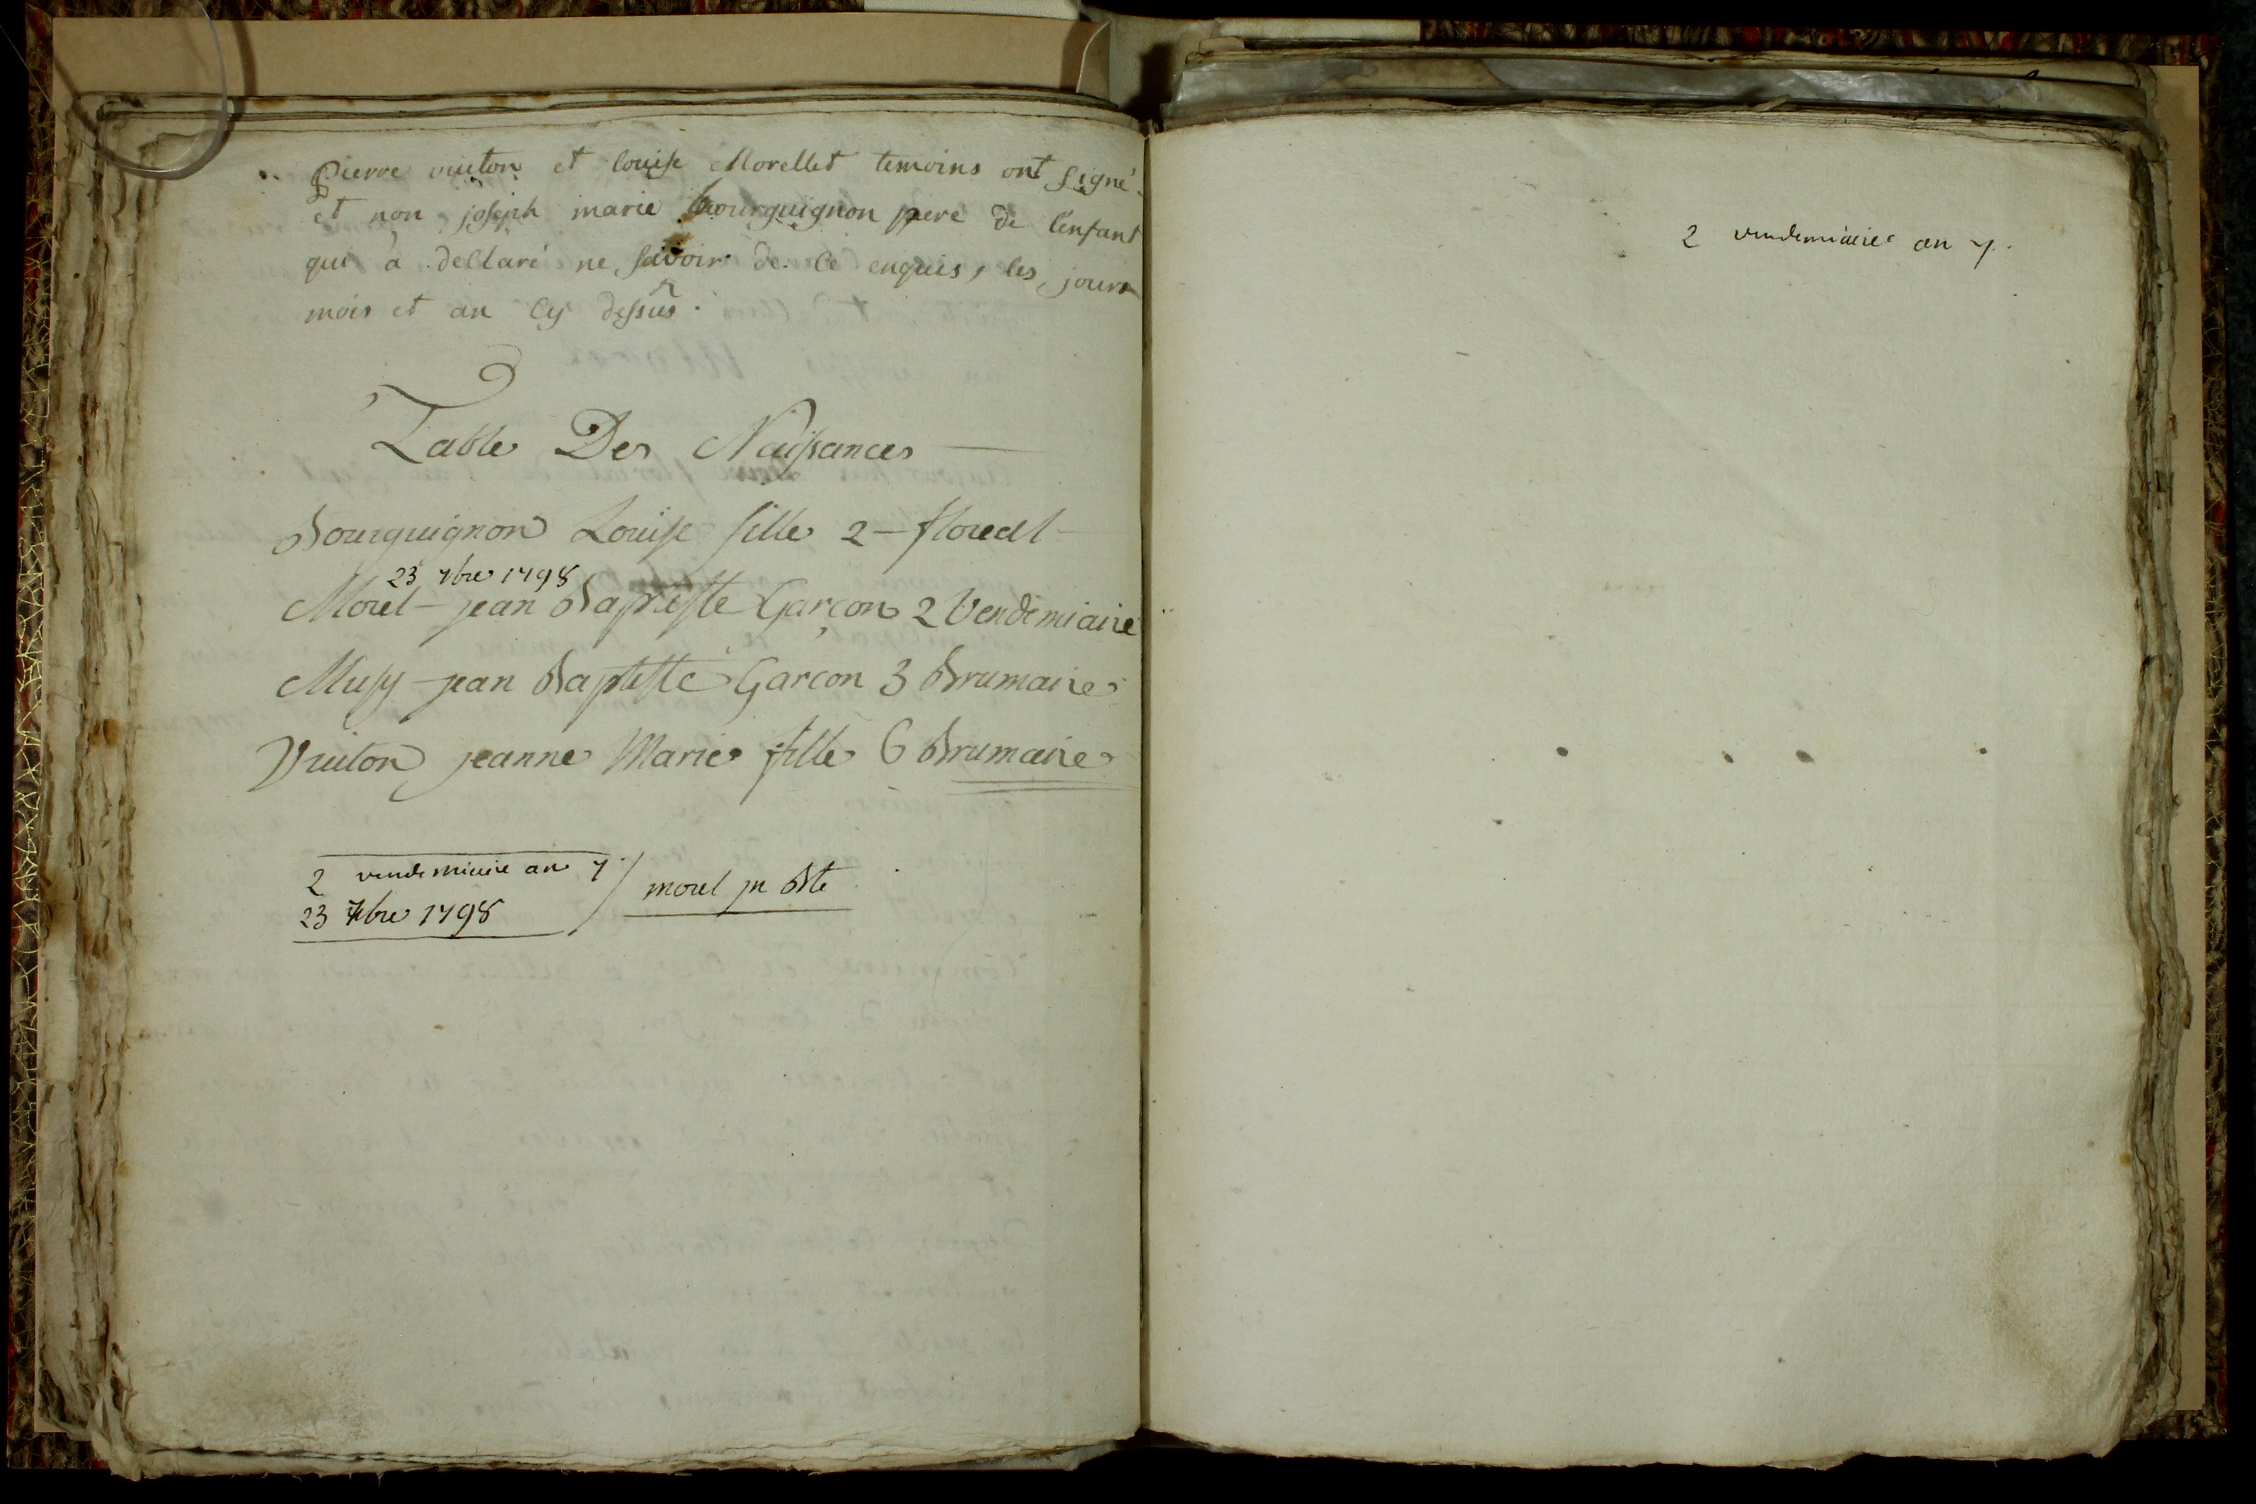 Pierre vuiton et louise Morellet temoins ont signé
et non joseph marie bourguignon pere de l'enfant
qui à declaré ne savoir de ce enquis, les jour
mois et an cy dessus.
Table Des Naissances
Bourguignon Louise fille 2 - floreal
23 7bre 1798
Morel - jean Baptiste Garçon 2 Vendemiaire
Musy - jean Baptiste Garçon 3 Brumaire
Vuiton jeanne Marie fille 6 Brumaire
2 vendemiaire an 7 / morel jn Bte
23 7bre 1798
2 vendemiaire an 7.